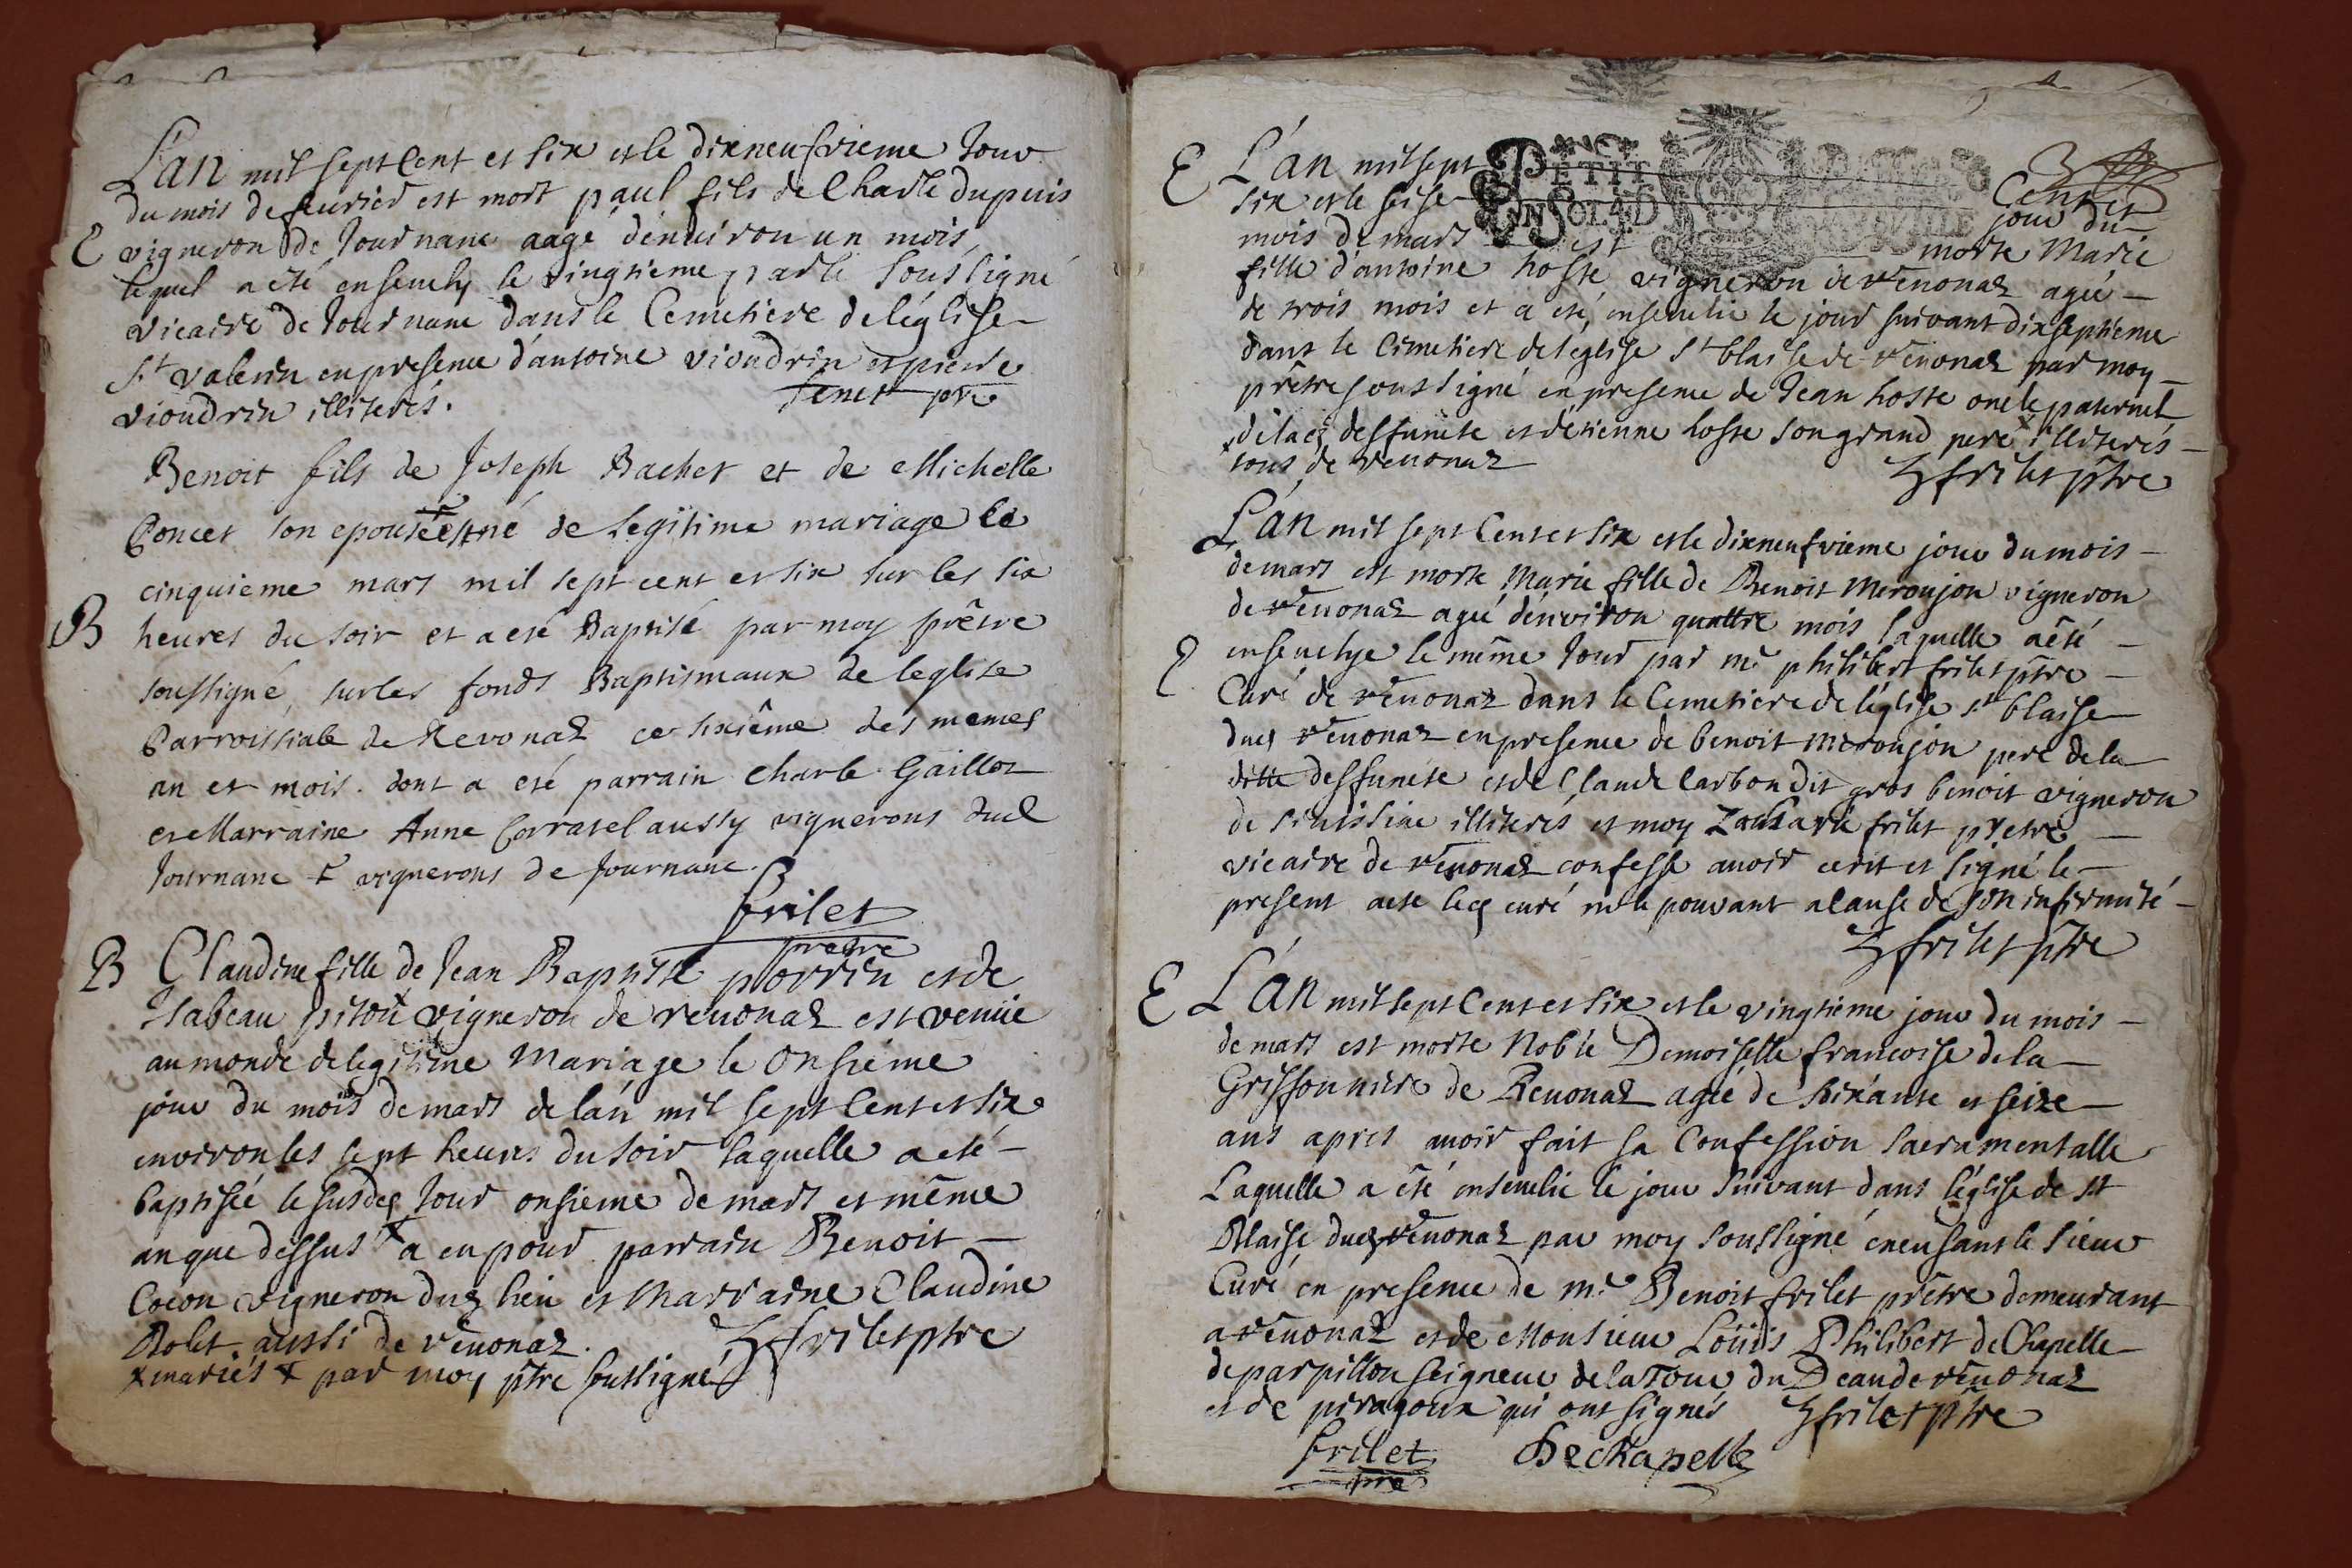 L'an mil sept Cent et six et le dixneufvieme Jour
du mois de feurier est mort paul fils de Charle dupuis
E vigneron de Journanc aagé d'enuiron un mois,
lequel a été enseuely le vingtieme par le soussigné
vicaire de Journanc dans le Cemetiere de l'église
St valerin en presence d'antoine vioudrin et pierre
vioudrin illiterés.
Tenet ptre
Benoit fils de Joseph Bachet et de Michelle
Poncet son epouse est né de legitime mariage le
cinquieme mars mil sept cent et six sur les six
B heures du soir et a eté Baptisé par moy prêtre
soussigné, sur les fonds Baptismaux de leglise
Parroissiale de Revonas ce sixiême des memes
an et mois. dont a eté parrain Charle Gaillot
et Marraine Anne Corratel aussy vignerons dud
Journanc + vignerons de Journanc.
frilet
pretre
B Claudine fille de Jean Baptiste porrin et de
Isabeau piton + vigneron de reuonas est venüe
au monde de legitime Mariage le Onsiéme
jour du mois de mars de l'an mil sept Cent et six
environ les sept heures du soir laquelle a eté -
baptisée le susdt Jour onsieme de mars et même
an que dessus + a eu pour parrain Benoit -
Cocon vigneron dudt lieu et Marraine Claudine
Rolet aussi de réuonaz. Z frilet ptre
+ mariés + par moy ptre soussigné
E L'an mil sept Cent et
PETIT
EN SOL 4 D
six et le seise jour du
mois de mars est morte Marie
fille d'antoine hoste vigneron de réuonas ageé -
de trois mois et a eté, enseuelie le jour suivant dixseptieme
dans le Cimetiere de l'eglise St blaisse de réuonas par moy -
prêtre soussigné en presence de Jean hoste oncle paternel
de lad deffuncte et d'etienne hoste son grand pere + illiterés -
+ tous de reuonaz
Z frilet ptre
L'an mil sept Cent et six et le dixneufvieme jour du mois -
de mars est morte Marie fille de Benoit Meroujon vigneron
de réuonas ageé d'environ quattre mois laquelle a êté -
E enseuelye le même Jour par mre philibert frilet ptre -
Curé de réuonaz dans le Cemetiere de l'église St blaisse
dud réuonaz en presence de benoit meroujon pere de la
ditte deffuncte et de Claude Carbon dit gros benoit vigneron
de illiterés et moy Zacharie frilet prêtre -
vicaire de réuonas confesse auoir ecrit et signé le -
present acte led curé ne le pouvant a Cause de son infirmité -
Z frilet ptre
E L'an mil sept Cent et six et le vingtieme jour du mois -
de mars est morte Noble Demoiselle francoise de la -
Griffonniere de Reuonas ageé de soixante et seize -
ans apres auoir fait sa Confession sacramentalle
Laquelle a été enseuelie le jour suivant dans l'église de St
Blaise dud réuonas par moy soussigné encusant le sieur
Curé en presence de mre Benoit frilet prêtre demeurant
a réuonaz et de Monsieur Loüis Philibert de Chapelle
de parpillon seigneur de la Tour du Deaux de réuonas
et de piragoux qui ont signés Z frilet ptre
frilet DeChapelle
ptre